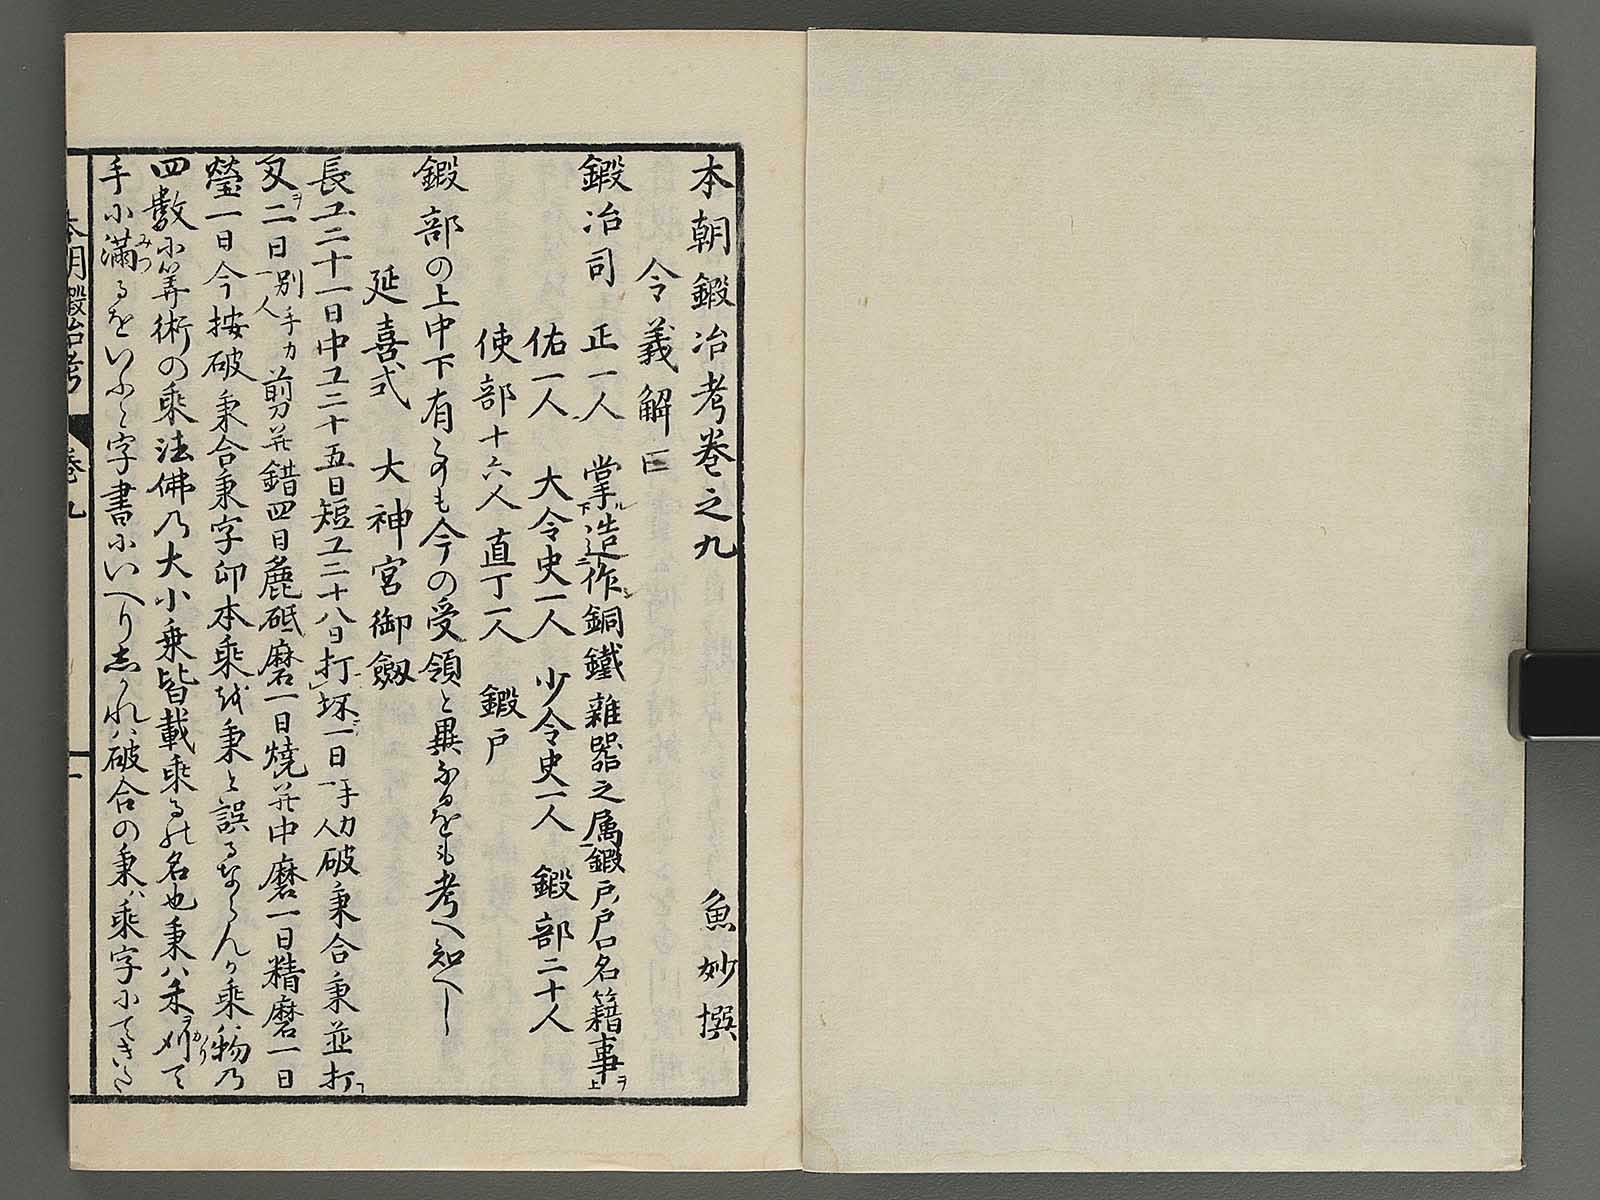 本朝鍛冶考巻之九 魚妙撰
令義解曰
鍛冶司 正一人 掌下造作銅鐵雜器之属鍛戸戸口名籍事上
佑一人 大令史一人 少令史一人 鍛部二十人
使部十六人 直丁一人 鍛戸
鍛部の上中下有るも今の受領と異なるをも考へ知へし
延喜式 大神宮御劔
長工二十一日中工二十五日短工二十八日打坯一日手力一人破秉合秉並打
刄二日別手力一人剪并錯四日麁砥磨一日焼并中磨一日精磨一日
瑩一日今按破秉合秉字印本乘を秉と誤るならんか乘物乃
四數小筭術の乘法佛乃大小乗皆載乘るの名也秉ハ禾ヲ刈て
手小滿るをいふと字書小いへり志かれハ破合の秉ハ乘字小て
本朝鍛冶考 巻九 一